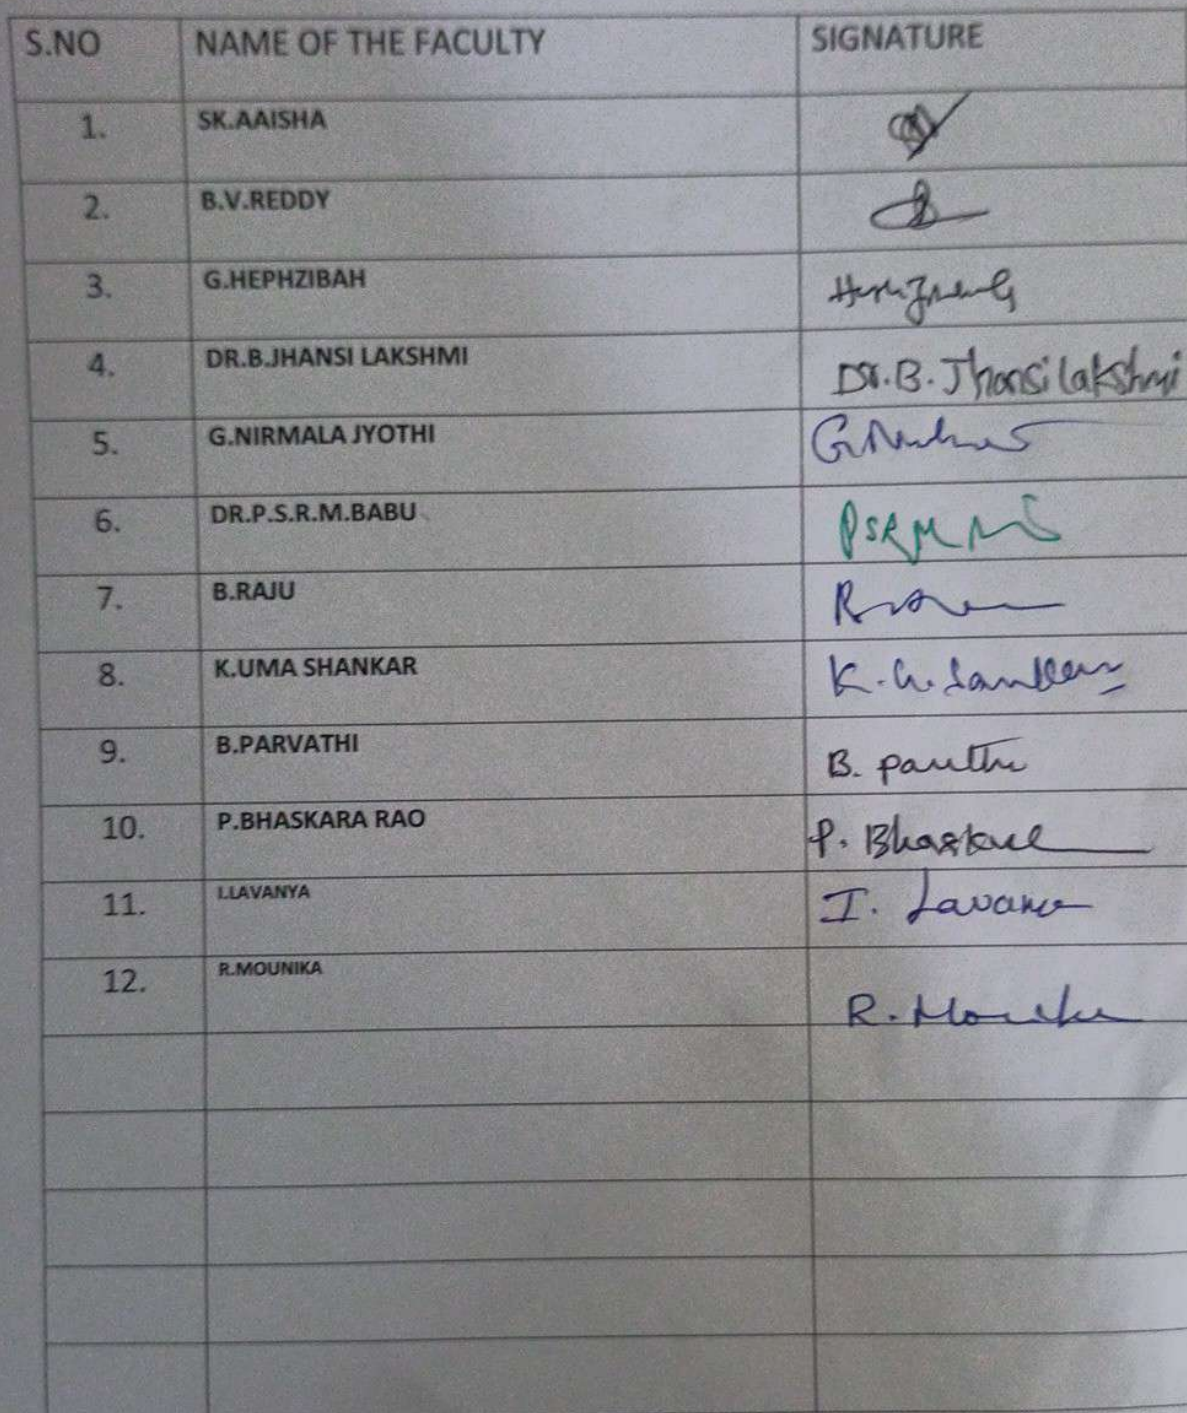 S.NO NAME OF THE FACULTY SIGNATURE
1. SK.AAISHA
2. B.V.REDDY
3. G.HEPHZIBAH
4. DR.B.JHANSI LAKSHMI Dr.B.Jhansi Lakshmi
5. G.NIRMALA JYOTHI
6. DR.P.S.R.M.BABU PSRM
7. B.RAJU
8. K.UMA SHANKAR
9. B.PARVATHI B.
10. P.BHASKARA RAO P.
11. I.LAVANYA I.
12. R.MOUNIKA R.